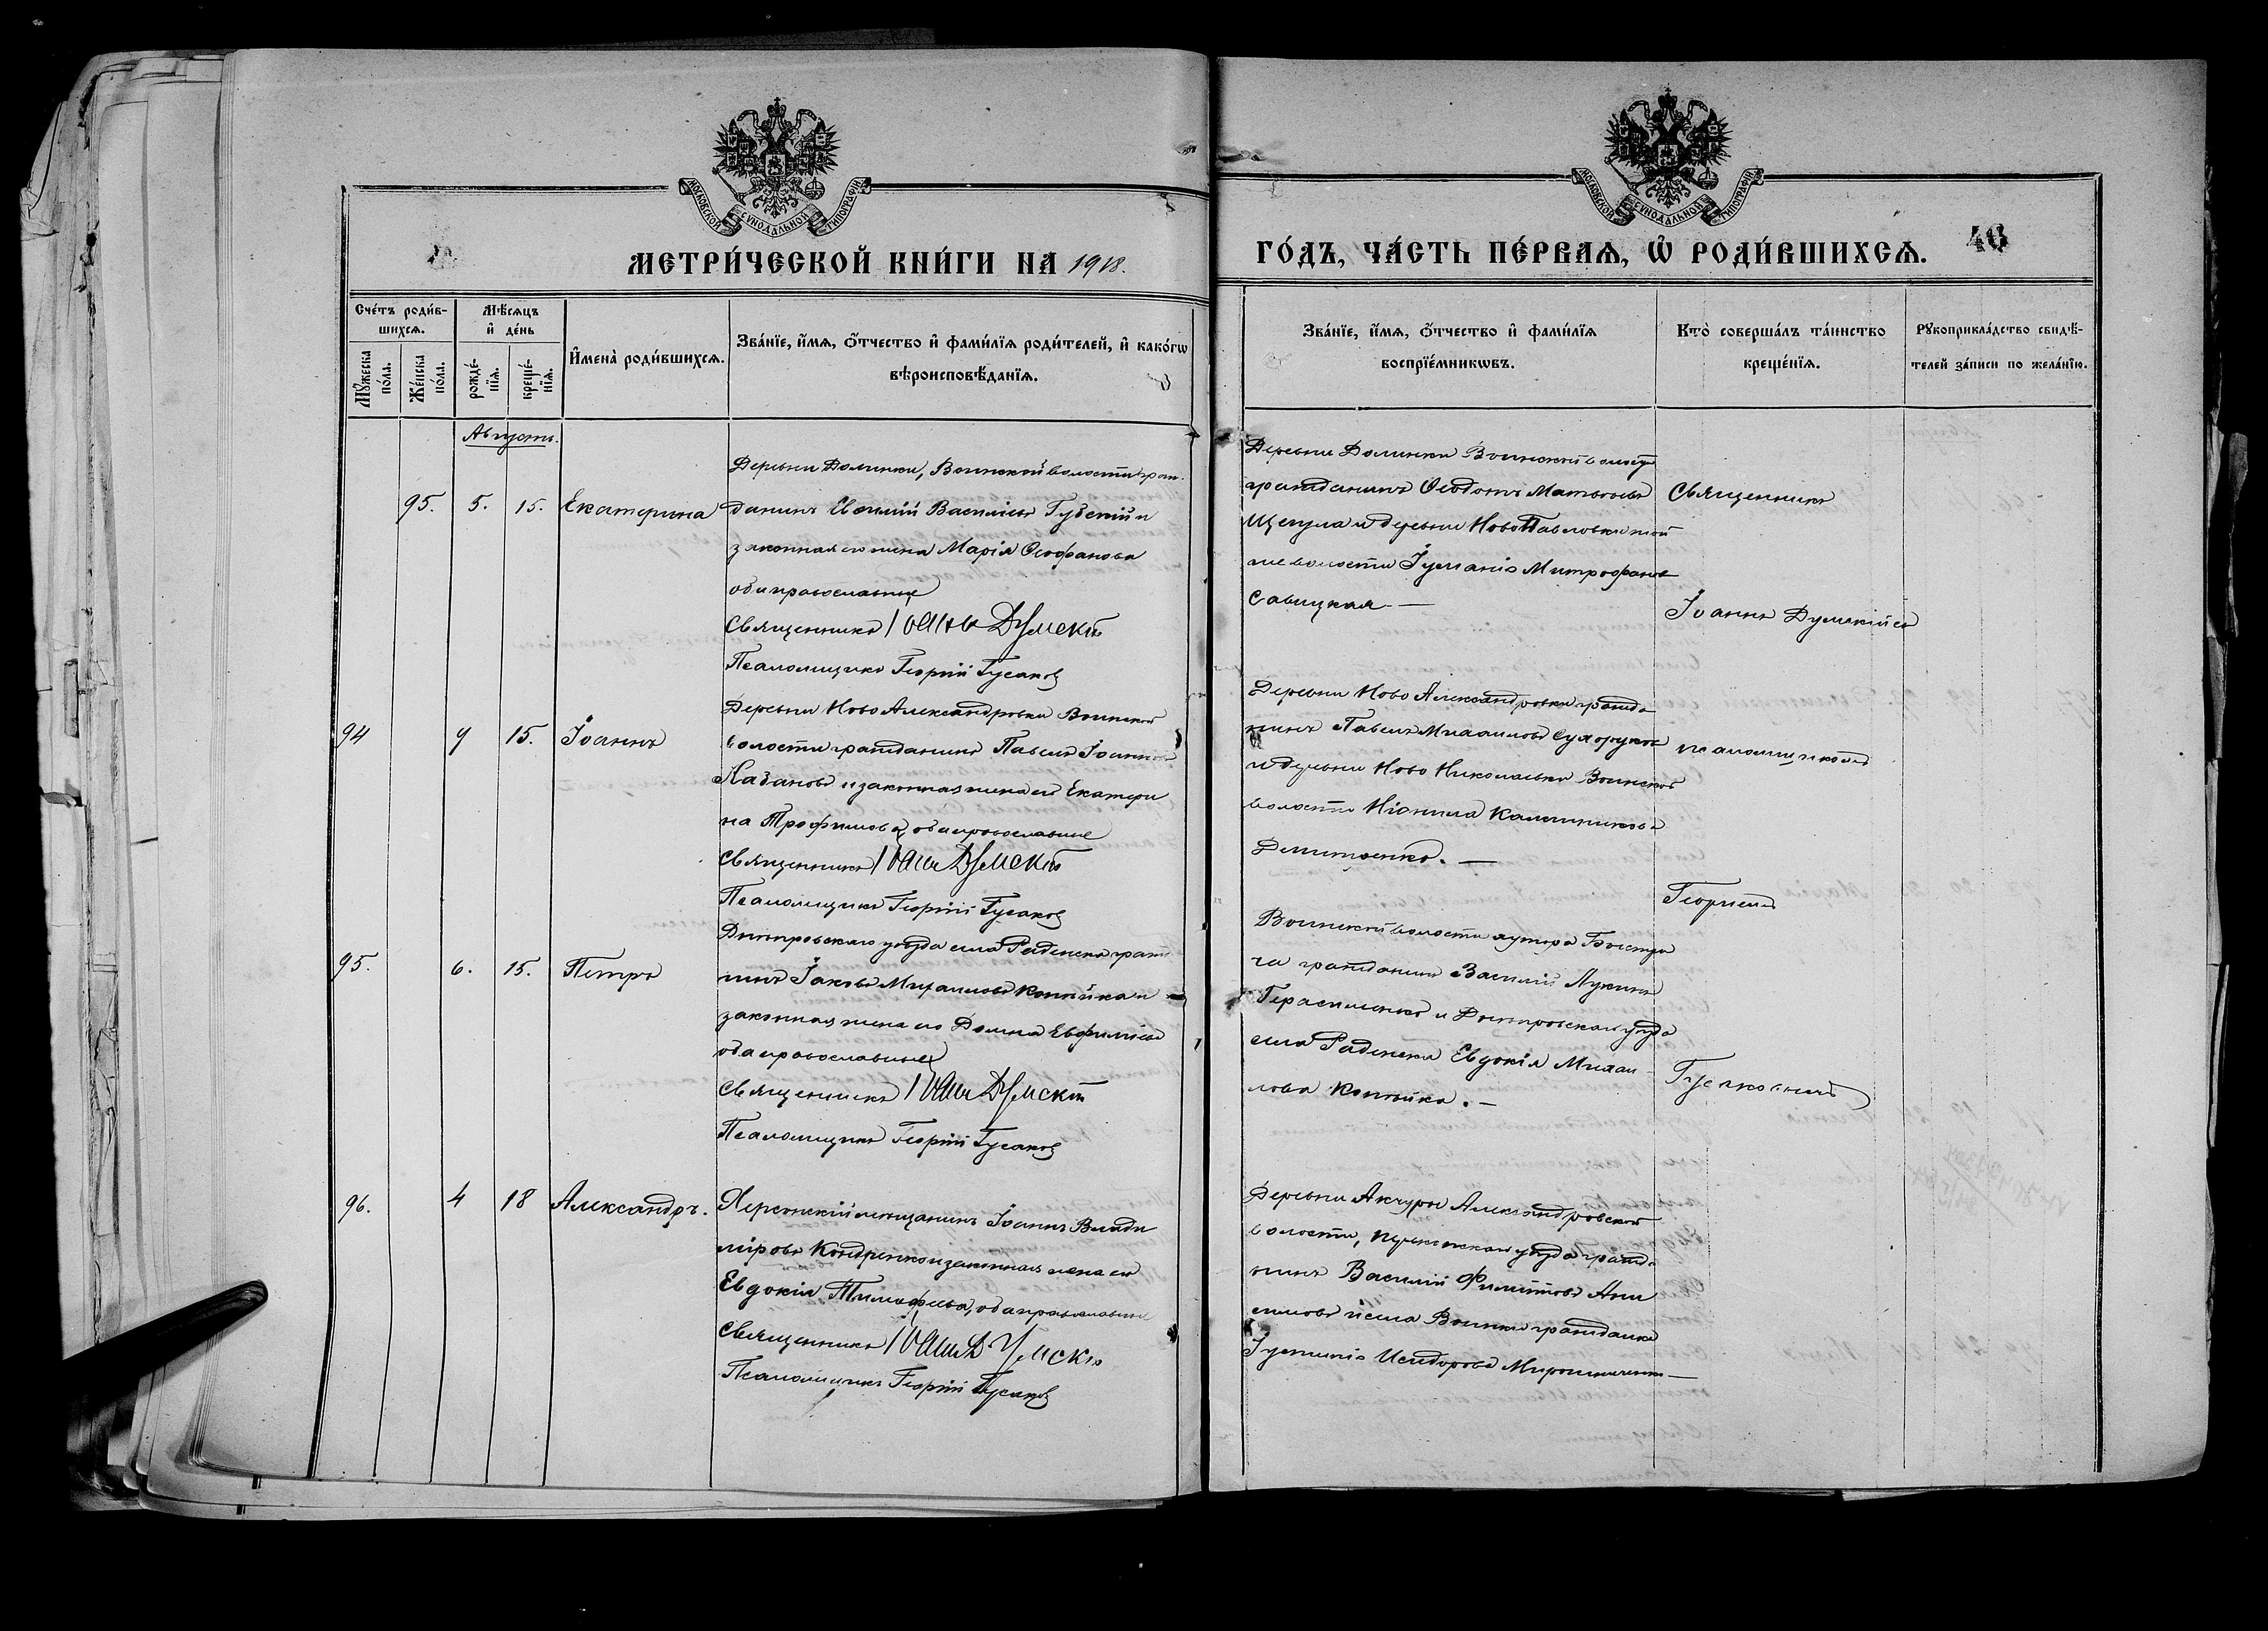 МОСКОВСКОЙ СУНОДАЛЬНОЙ ТИПОГРАФІИ
МОСКОВСКОЙ СУНОДАЛЬНОЙ ТИПОГРАФІИ
МЕТРИ́ЧЕСКОЙ КНИ́ГИ НА 1918.
ГО́ДЪ, ЧА́СТЬ ПЕ́РВАѦ, Ѡ РОДИ́ВШИХСѦ. 46
Сче́тъ роди́в-
шихсѧ.
Мꙋ́жеска по́ла.
Же́нска по́ла.
Мѣ́сѧцъ
и҆ де́нь
рожде́-
нїѧ.
креще́-
нїѧ.
И҆мена̀ роди́вшихсѧ.
Зва́нїе, и҆́мѧ, ѻ҆́тчество и҆ фами́лїѧ роди́телей, и҆ како́гѡ
вѣроисповѣ́данїѧ.
Зва́нїе, и҆́мѧ, ѻ҆́тчество и҆ фами́лїѧ
воспрїе́мникѡвъ.
Кто̀ соверша́лъ та́инство
креще́нїѧ.
Рꙋкоприкла́дство свидѣ́-
телей за́писи по жела́нїю.
Августъ.
95. 5. 15. Екатерина
Деревни Долинки, Воинской волости граж-
данинъ Евфимій Васильевъ Губскій и
законная его жена Марія Феофанова
оба православные
Священникъ Іоаннъ Думскій
Псаломщикъ Георгій Гусаковъ
Деревни Долинки Воинской волости
гражданинъ Феодотъ Матвѣевъ
Щегула и деревни НовоПавловки той
же волости Іуліанія Митрофанова
Савицкая —
Священникъ
Іоаннъ Думскій съ
94 9 15. Іоаннъ
Деревни НовоАлександровки Воинской
волости гражданинъ Павелъ Іоанновъ
Казановъ и законная жена его Екатери
на Трофимова, оба православные
Священникъ Іоаннъ Думскій
Псаломщикъ Георгій Гусаковъ
Деревни Ново Александровки гражда
нинъ Павелъ Михаиловъ Сухоруковъ
и деревни Ново Николаевки Воинской
волости Неонила Калинникова
Демитренко. —
псаломщикомъ
Георгіемъ
95. 6. 15. Петръ
Днѣпровскаго уѣзда села Раденска гражд
нинъ Іаковъ Михаиловъ Копѣйка и
законная жена его Домна Евфиміева
оба православные
Священникъ Іоаннъ Думскій
Псаломщикъ Георгій Гусаковъ
Воинской волости хутора
гражданинъ Василій Лукинъ
Герасименко и Днѣпровскаго уѣзда
села Раденска Евдокія Михаи-
лова Копѣйка. —
Гусаковымъ
96. 4 18 Александръ.
Херсонскій мѣщанинъ Іоаннъ Влади
міровъ Кондренко и законная жена его
Евдокія Тимофеева, оба православные
Священникъ Іоаннъ Думскій
Псаломщикъ Георгій Гусаковъ
Деревни Акчуры Александровской
волости, уѣзда гражда
нинъ Василій Ани
симовъ и села Воинки гражданка
Іустинія Исидорова Мирошниченко —